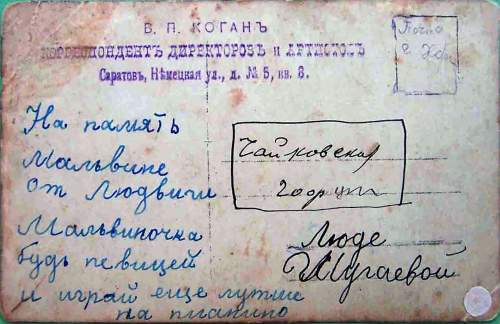 В. П. КОГАНЪ
КОРРЕСПОНДЕНТЪ ДИРЕКТОРОВЪ и АРТИСТОВЪ
Саратовъ, Нѣмецкая ул., д. № 5, кв. 8.
На память
Мальвине
от Людвиги
Мальвиночка
будь певицей
и играй еще лутше
на пианино
Чайковская
Люде
Шугаевой